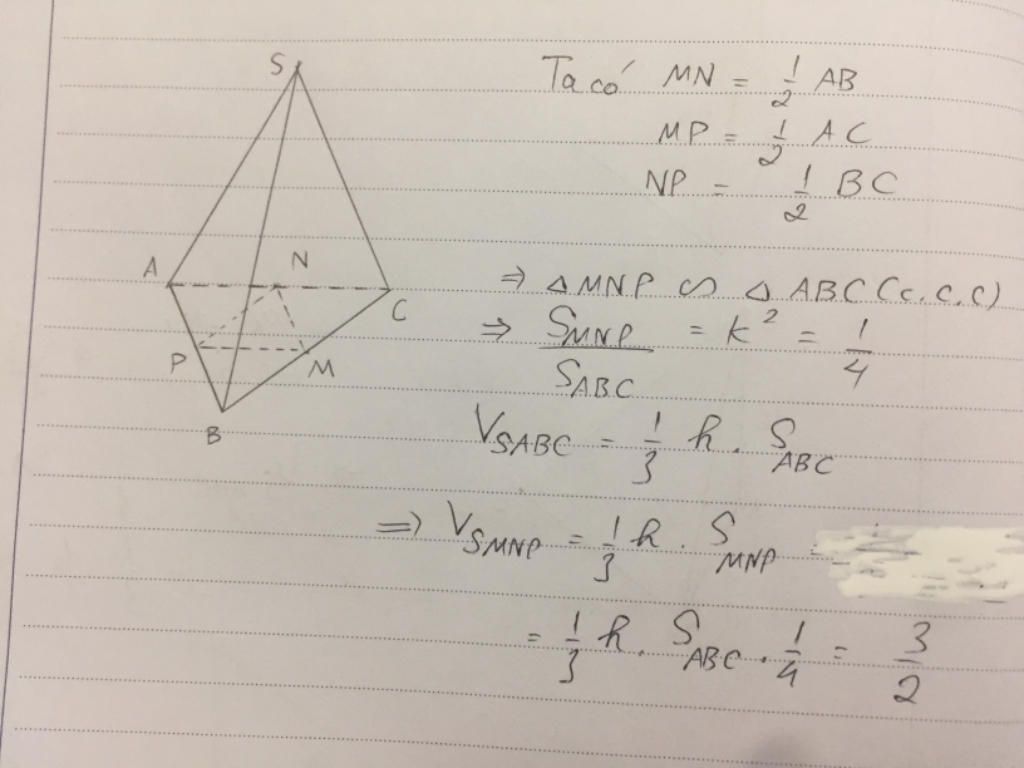 S
Ta có MN = 1/2 AB
MP = 1/2 AC
NP = 1/2 BC
A N C
P M
B
⇒ △MNP ∽ △ABC (c.c.c)
⇒ S_MNP / S_ABC = k² = 1/4
V_SABC = 1/3 h . S_ABC
⇒ V_SMNP = 1/3 h . S_MNP =
= 1/3 h . S_ABC . 1/4 = 3/2